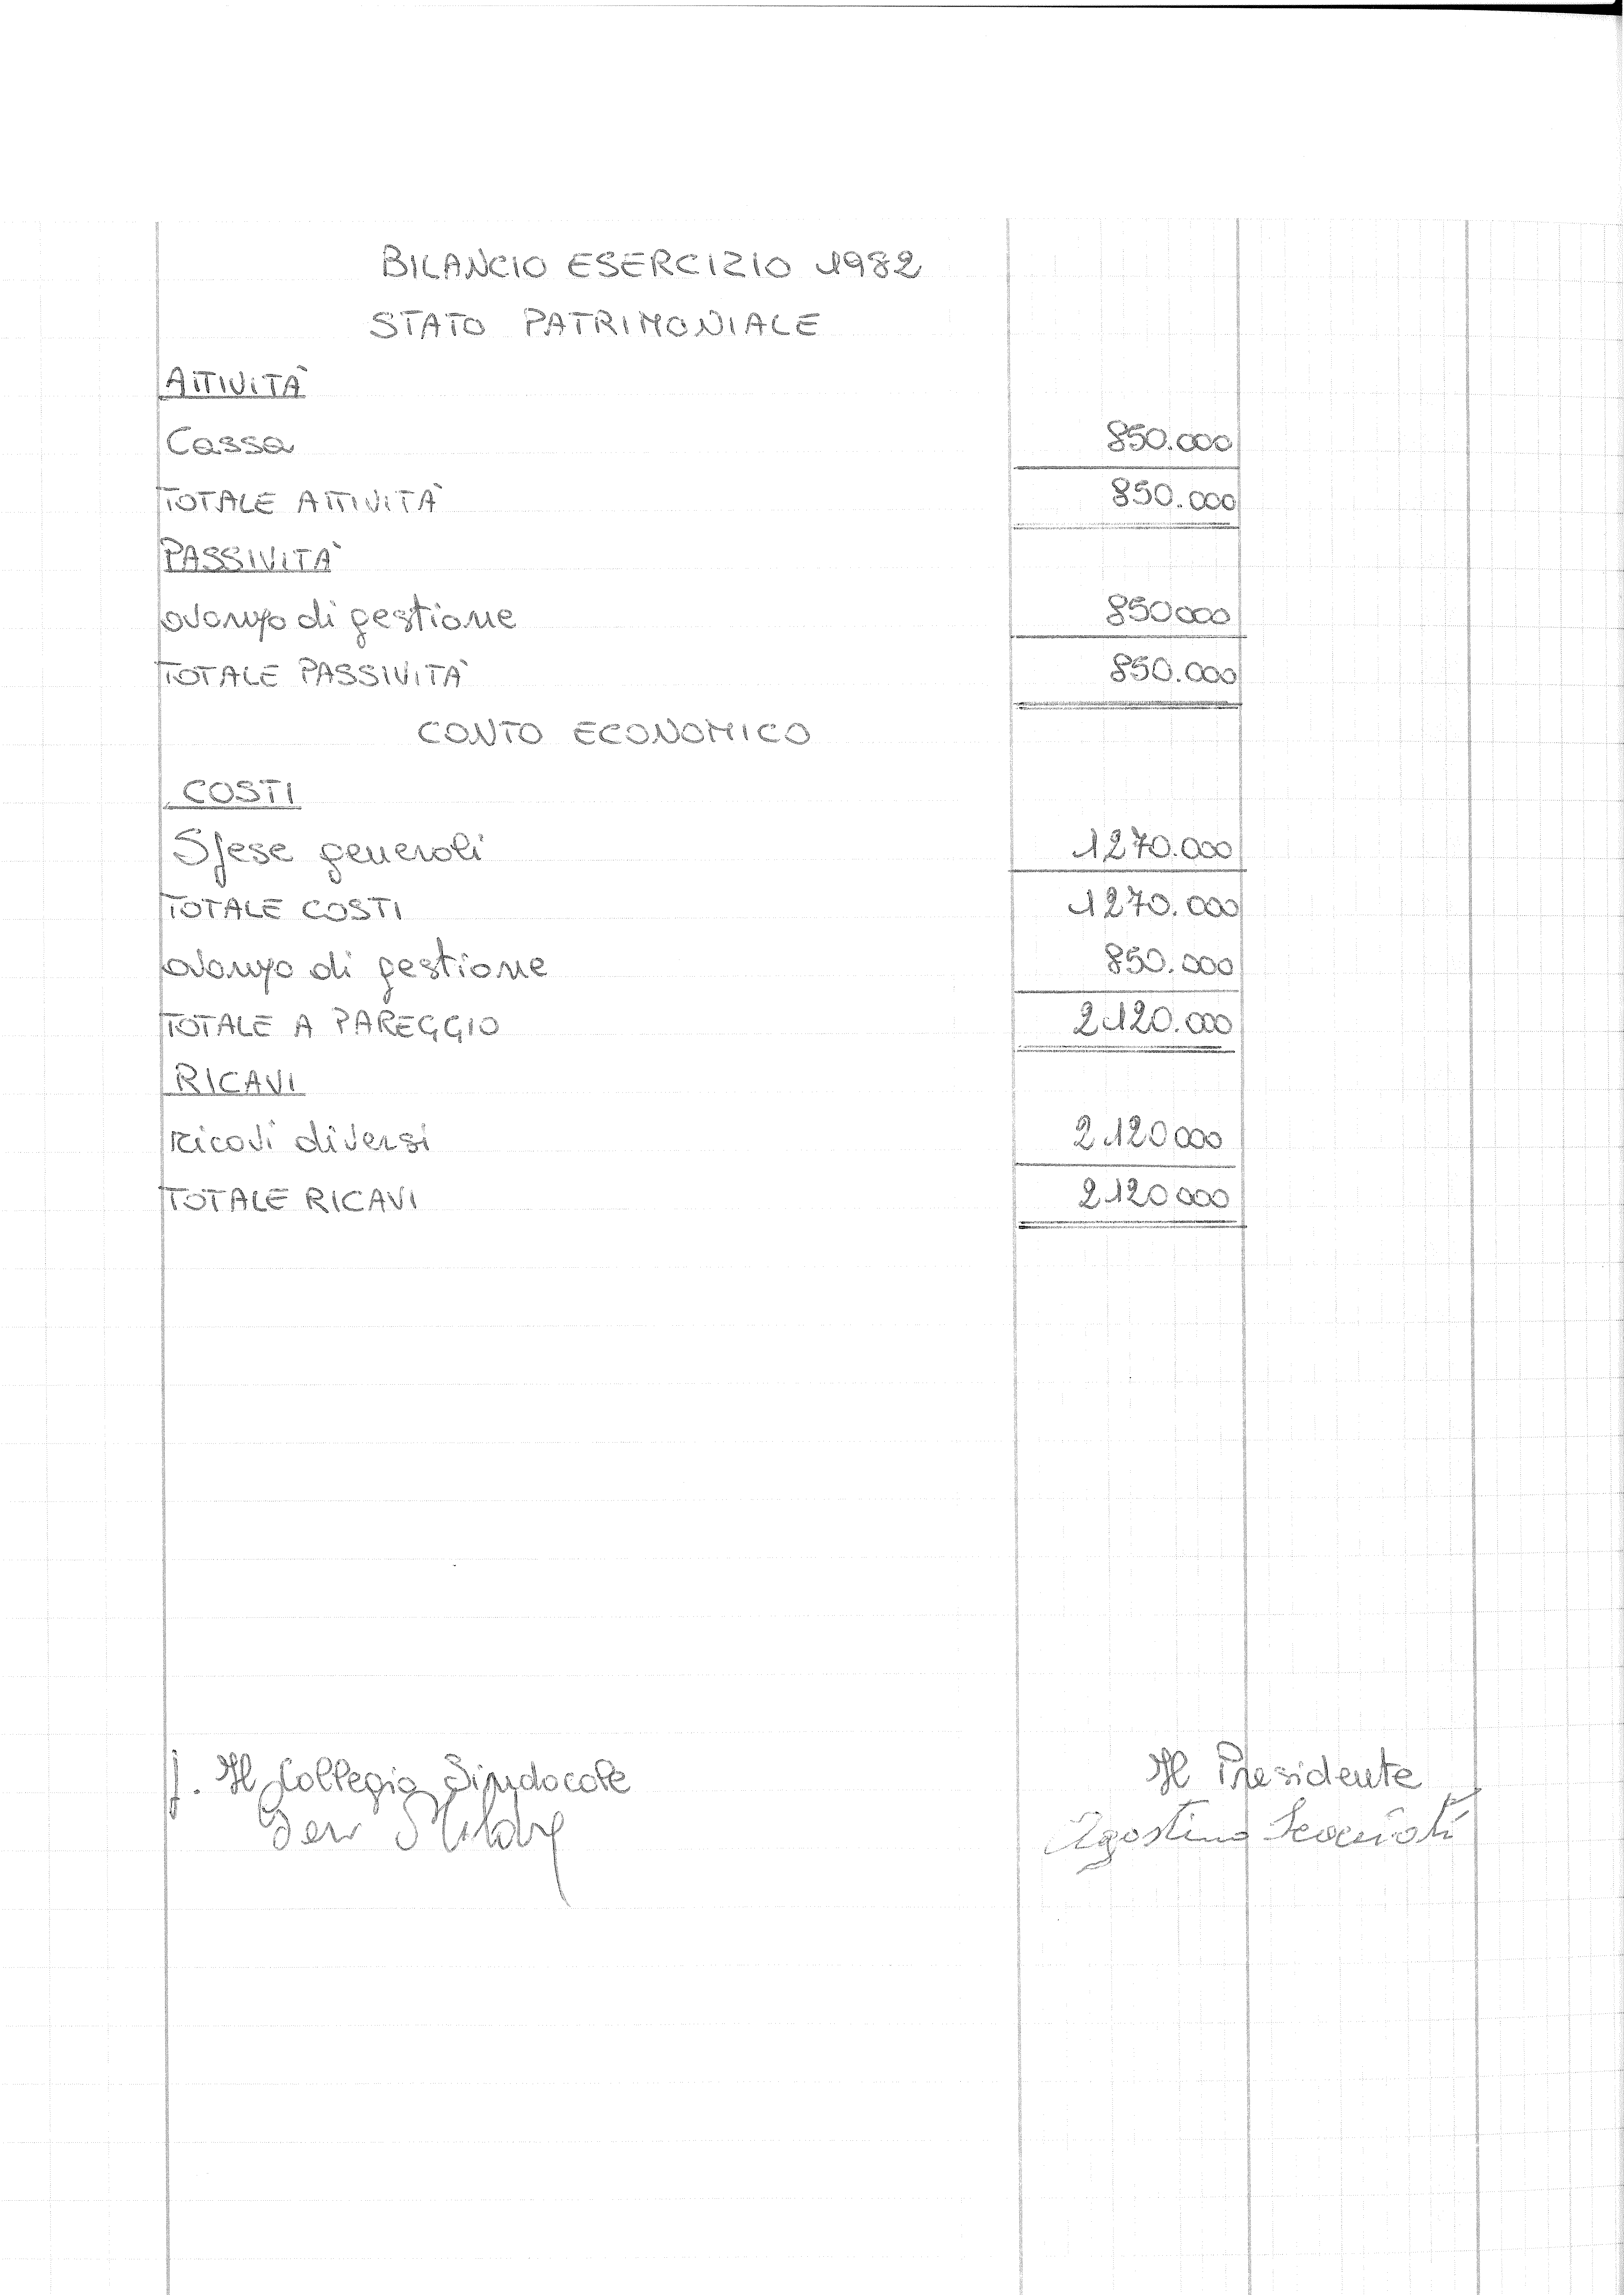 BILANCIO ESERCIZIO 1982
STATO PATRIMONIALE
ATTIVITÀ
Cassa 850.000
TOTALE ATTIVITÀ 850.000
PASSIVITÀ
avanzo di gestione 850000
TOTALE PASSIVITÀ 850.000
CONTO ECONOMICO
COSTI
Spese generali 1270.000
TOTALE COSTI 1270.000
avanzo di gestione 850.000
TOTALE A PAREGGIO 2120.000
RICAVI
ricavi diversi 2120000
TOTALE RICAVI 2120000
p. Il Collegio Sindacale Il Presidente
Agostino